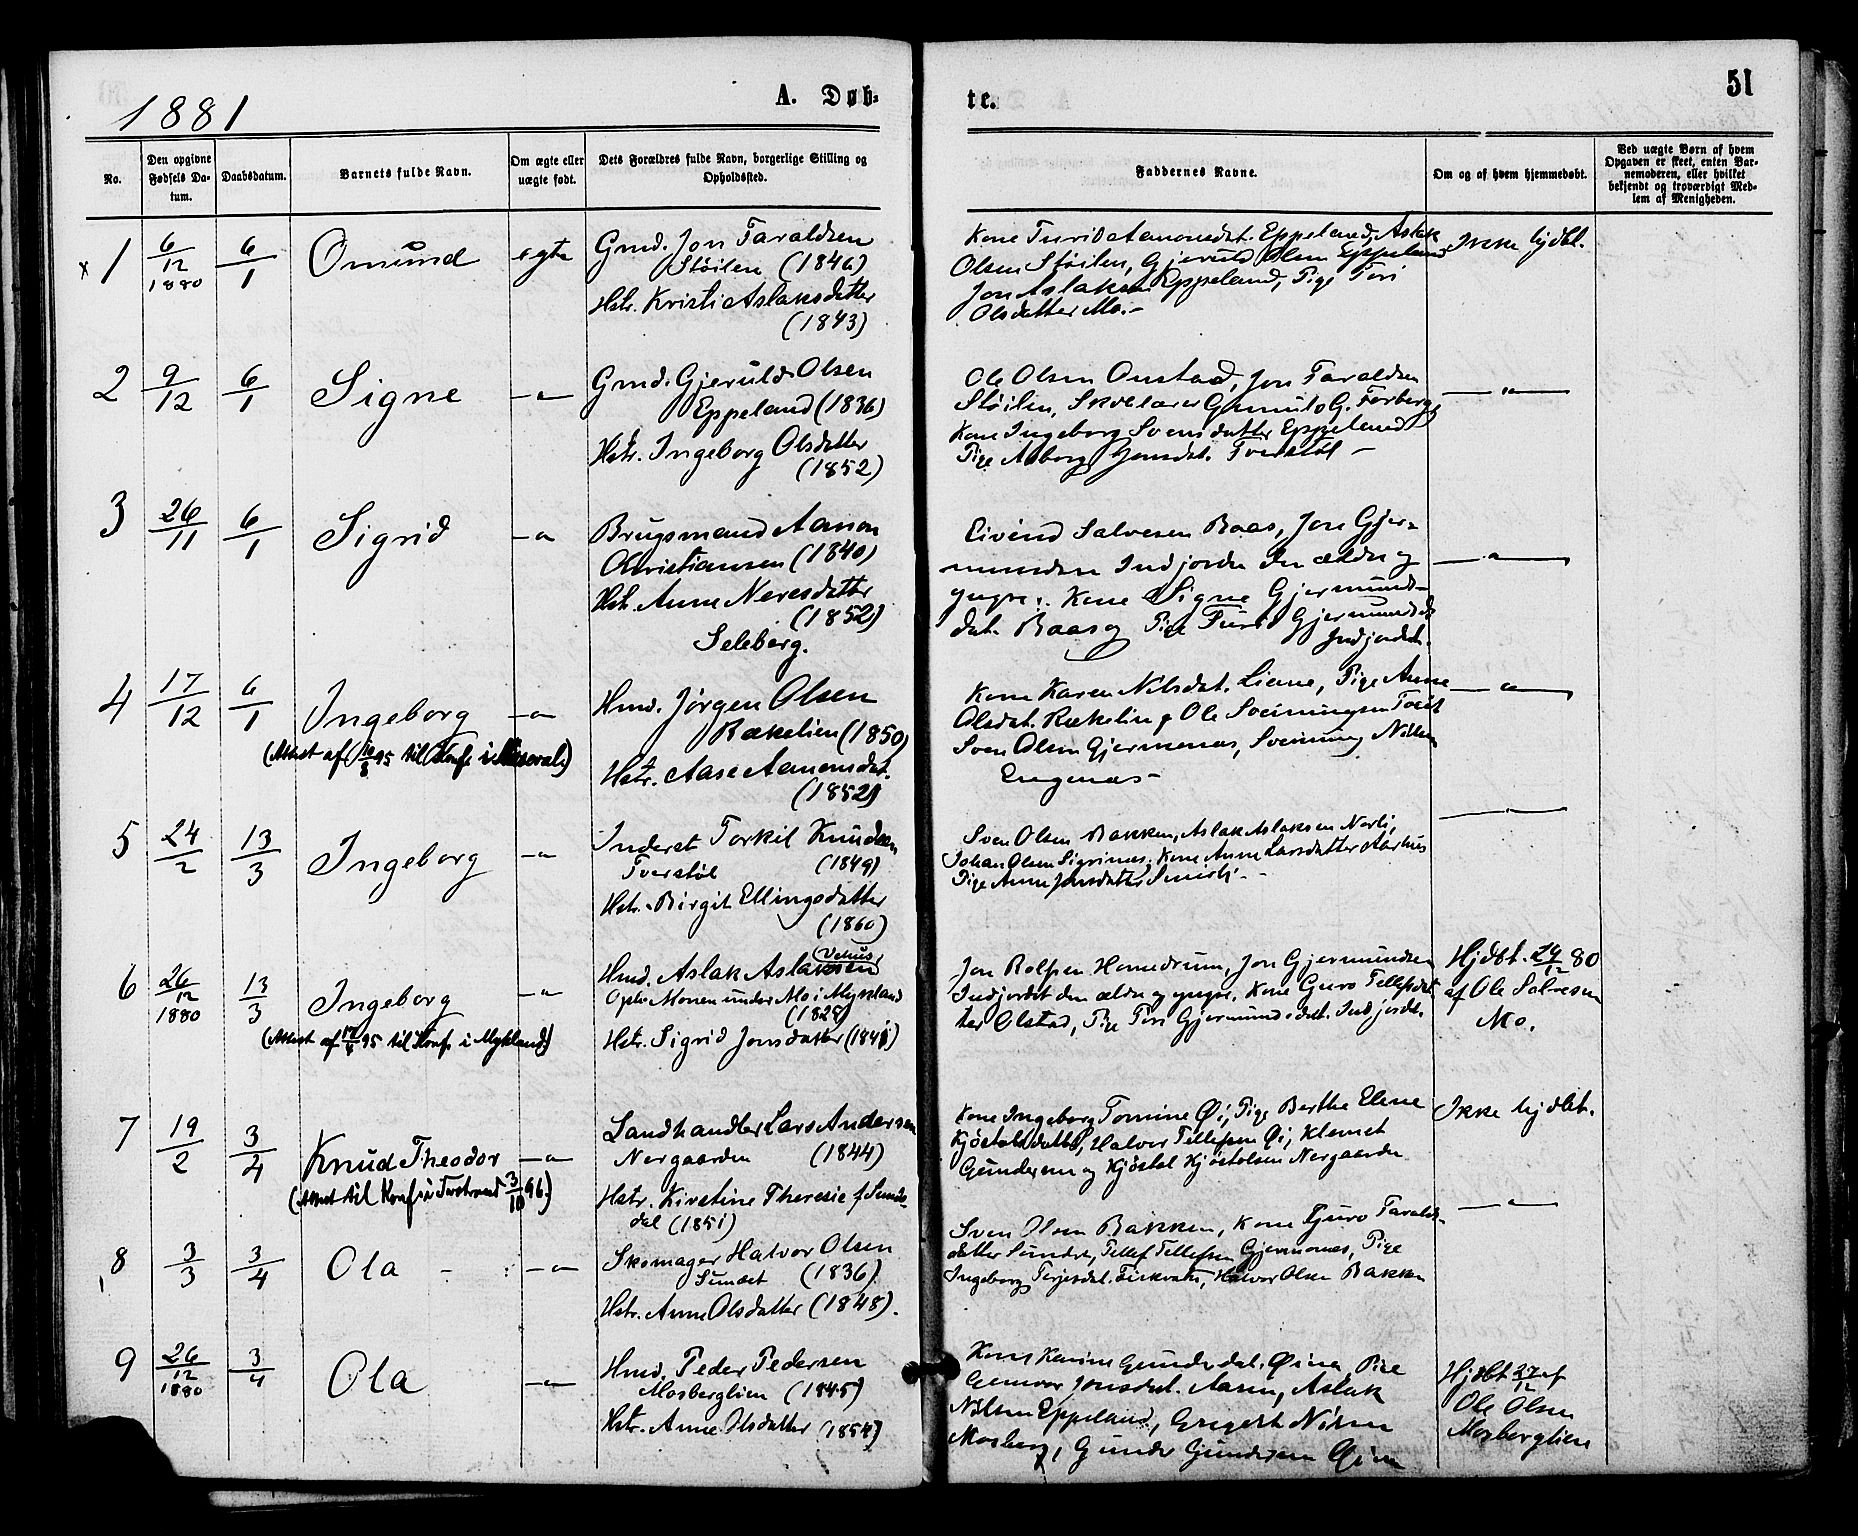 1881
A. Døb=
te.
51
No.
Den opgivne
Fødsels Da-
tum.
Daabsdatum.
Barnets fulde Navn.
Om ægte eller
uægte født.
Dets Forældres fulde Navn, borgerlige Stilling og
Opholdssted.
Faddernes Navne.
Om og af hvem hjemmedøbt.
Ved uægte Børn af hvem
Opgaven er skeet, enten Bar-
nemoderen, eller hvilket
bekjendt og troværdigt Med-
lem af Menigheden.
x 1
6/12 1880
6/1
Omund
egte
Gmd. Jon Taraldsen
Støilen (1846)
Hstr. Kristi Aslaksdatter
(1843)
Kone Turid Aamonsdat. Eppeland, Aslak
Olsen Støilen, Gjeruld Olsen Eppeland
Jon Aslaksen Eppeland, Pige Tori
Olsdatter Mo.-
Ikke hjdbt.
2
9/12
6/1
Signe
-"-
Gmd. Gjeruld Olsen
Eppeland (1836)
Hstr. Ingeborg Olsdatter
(1852)
Ole Olsen Onstad, Jon Taraldsen
Støilen, Skolelærer Gunnuld G. Forberg,
Kone Ingeborg Svensdatter Eppeland
Pige Asborg Jonsdat. Tverstøl -
-"-
3
26/11
6/1
Sigrid
-"-
Brugsmand Aamon
Christiansen (1840)
Hst. Anne Neresdatter
(1852)
Seleberg.
Eivind Salvesen Baas, Jon Gjer-
mundsen Indjordet den ældre og
yngre, Kone Signe Gjermunds-
dat. Baas og Pige Turi Gjermundsd.
Indjordet.
-"-
4
17/12
6/1
Ingeborg
-"-
(Attest af 10/8 95 til Konf. i Aaseral.)
Hmd. Jørgen Olsen
Rækelien (1850)
Hstr. Aase Aamonsdat.
(1852)
Kone Karen Nilsdat. Liene, Pige Anne
Olsdat. Rækelien, Ole Sveinungsen
Sven Olsen Gjermenes, Sveinung Nilsen
Engenes -
-"-
5
24/2
13/3
Ingeborg
-"-
Inderst Torkil Knudsen
Tverstøl (1849)
Hstr. Birgit Ellingsdatter
(1860)
Sven Olsen Bakken, Aslak Aslaksen Norli,
Johan Olsen Sigrines, Kone Anne Larsdatter Aarhus
Pige Anne Jonsdatter
-"-
6
26/12 1880
13/3
Ingeborg
-"-
(Attest af 17/8 95 til Konf. i Mykland)
Vehus
Hmd. Aslak Aslaksen
Opho Monen under Mo i Mykland
(1828)
Hstr. Sigrid Jonsdatter (1841)
Jon Rolfsen Homedrum, Jon Gjermundsen
Indjordet den ældre og yngre, Kone Guro Tellefsdat
ter Olstad, Pige Tori Gjermundsdat. Indjordet.
Hjdbt. 29/12 80
af Ole Salvesen
Mo.
7
19/2
3/4
Knud Theodor
-"-
(Attest til Konf. i Tvedestrand 3/10 96.)
Landhandler Lars Andersen
Nergaarden (1844)
Hstr. Kirstine Theresie f. Sunds-
dal (1851)
Kone Ingeborg Tomine Øi, Pige Berthe Elene
Kjøstolsdatter, Halvor Tellefsen Øi, Klemet
Gundersen og Kjøstol Kjøstolsen Nergaarden
Ikke hjdbt.
8
3/3
3/4
Ola
-"-
Skomager Halvor Olsen
Sundet (1836)
Hstr. Anne Olsdatter (1848).
Sven Olsen Bakken, Kone Guro Taralds-
datter Sundet, Tellef Tellefsen Gjermones, Pige
Ingeborg Terjesdat. Fiskvatn, Halvor Olsen Bakken
-"-
9
26/12 1880
3/4
Ola
-"-
Hmd. Peder Pedersen
Mosberglien (1845)
Hstr. Anne Olsdatter (1854)
Kone Karine Gundersdat. Øina, Pige
Gunvor Jonsdat. Aasen, Aslak
Nilsen Eppeland, Gregert Nilsen
Mosberg, Gunder Gundersen Øina
Hjdbt 27/12 af
Ole Olsen
Mosberglien